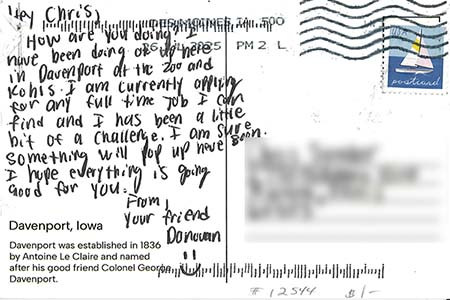 Hey Chris,
How are you doing? I
have been doing ok up here
in Davenport at the zoo and
Kohls. I am currently applying
for any full time job I can
find and I has been a little
bit of a challenge. I am sure
something will pop up here soon.
I hope everything is going
good for you.
From,
your friend
Donovan
DES MOINES IA 500
2025 PM 2 L
USA
postcard
Davenport, Iowa
Davenport was established in 1836
by Antoine Le Claire and named
after his good friend Colonel George
Davenport.
# 12544